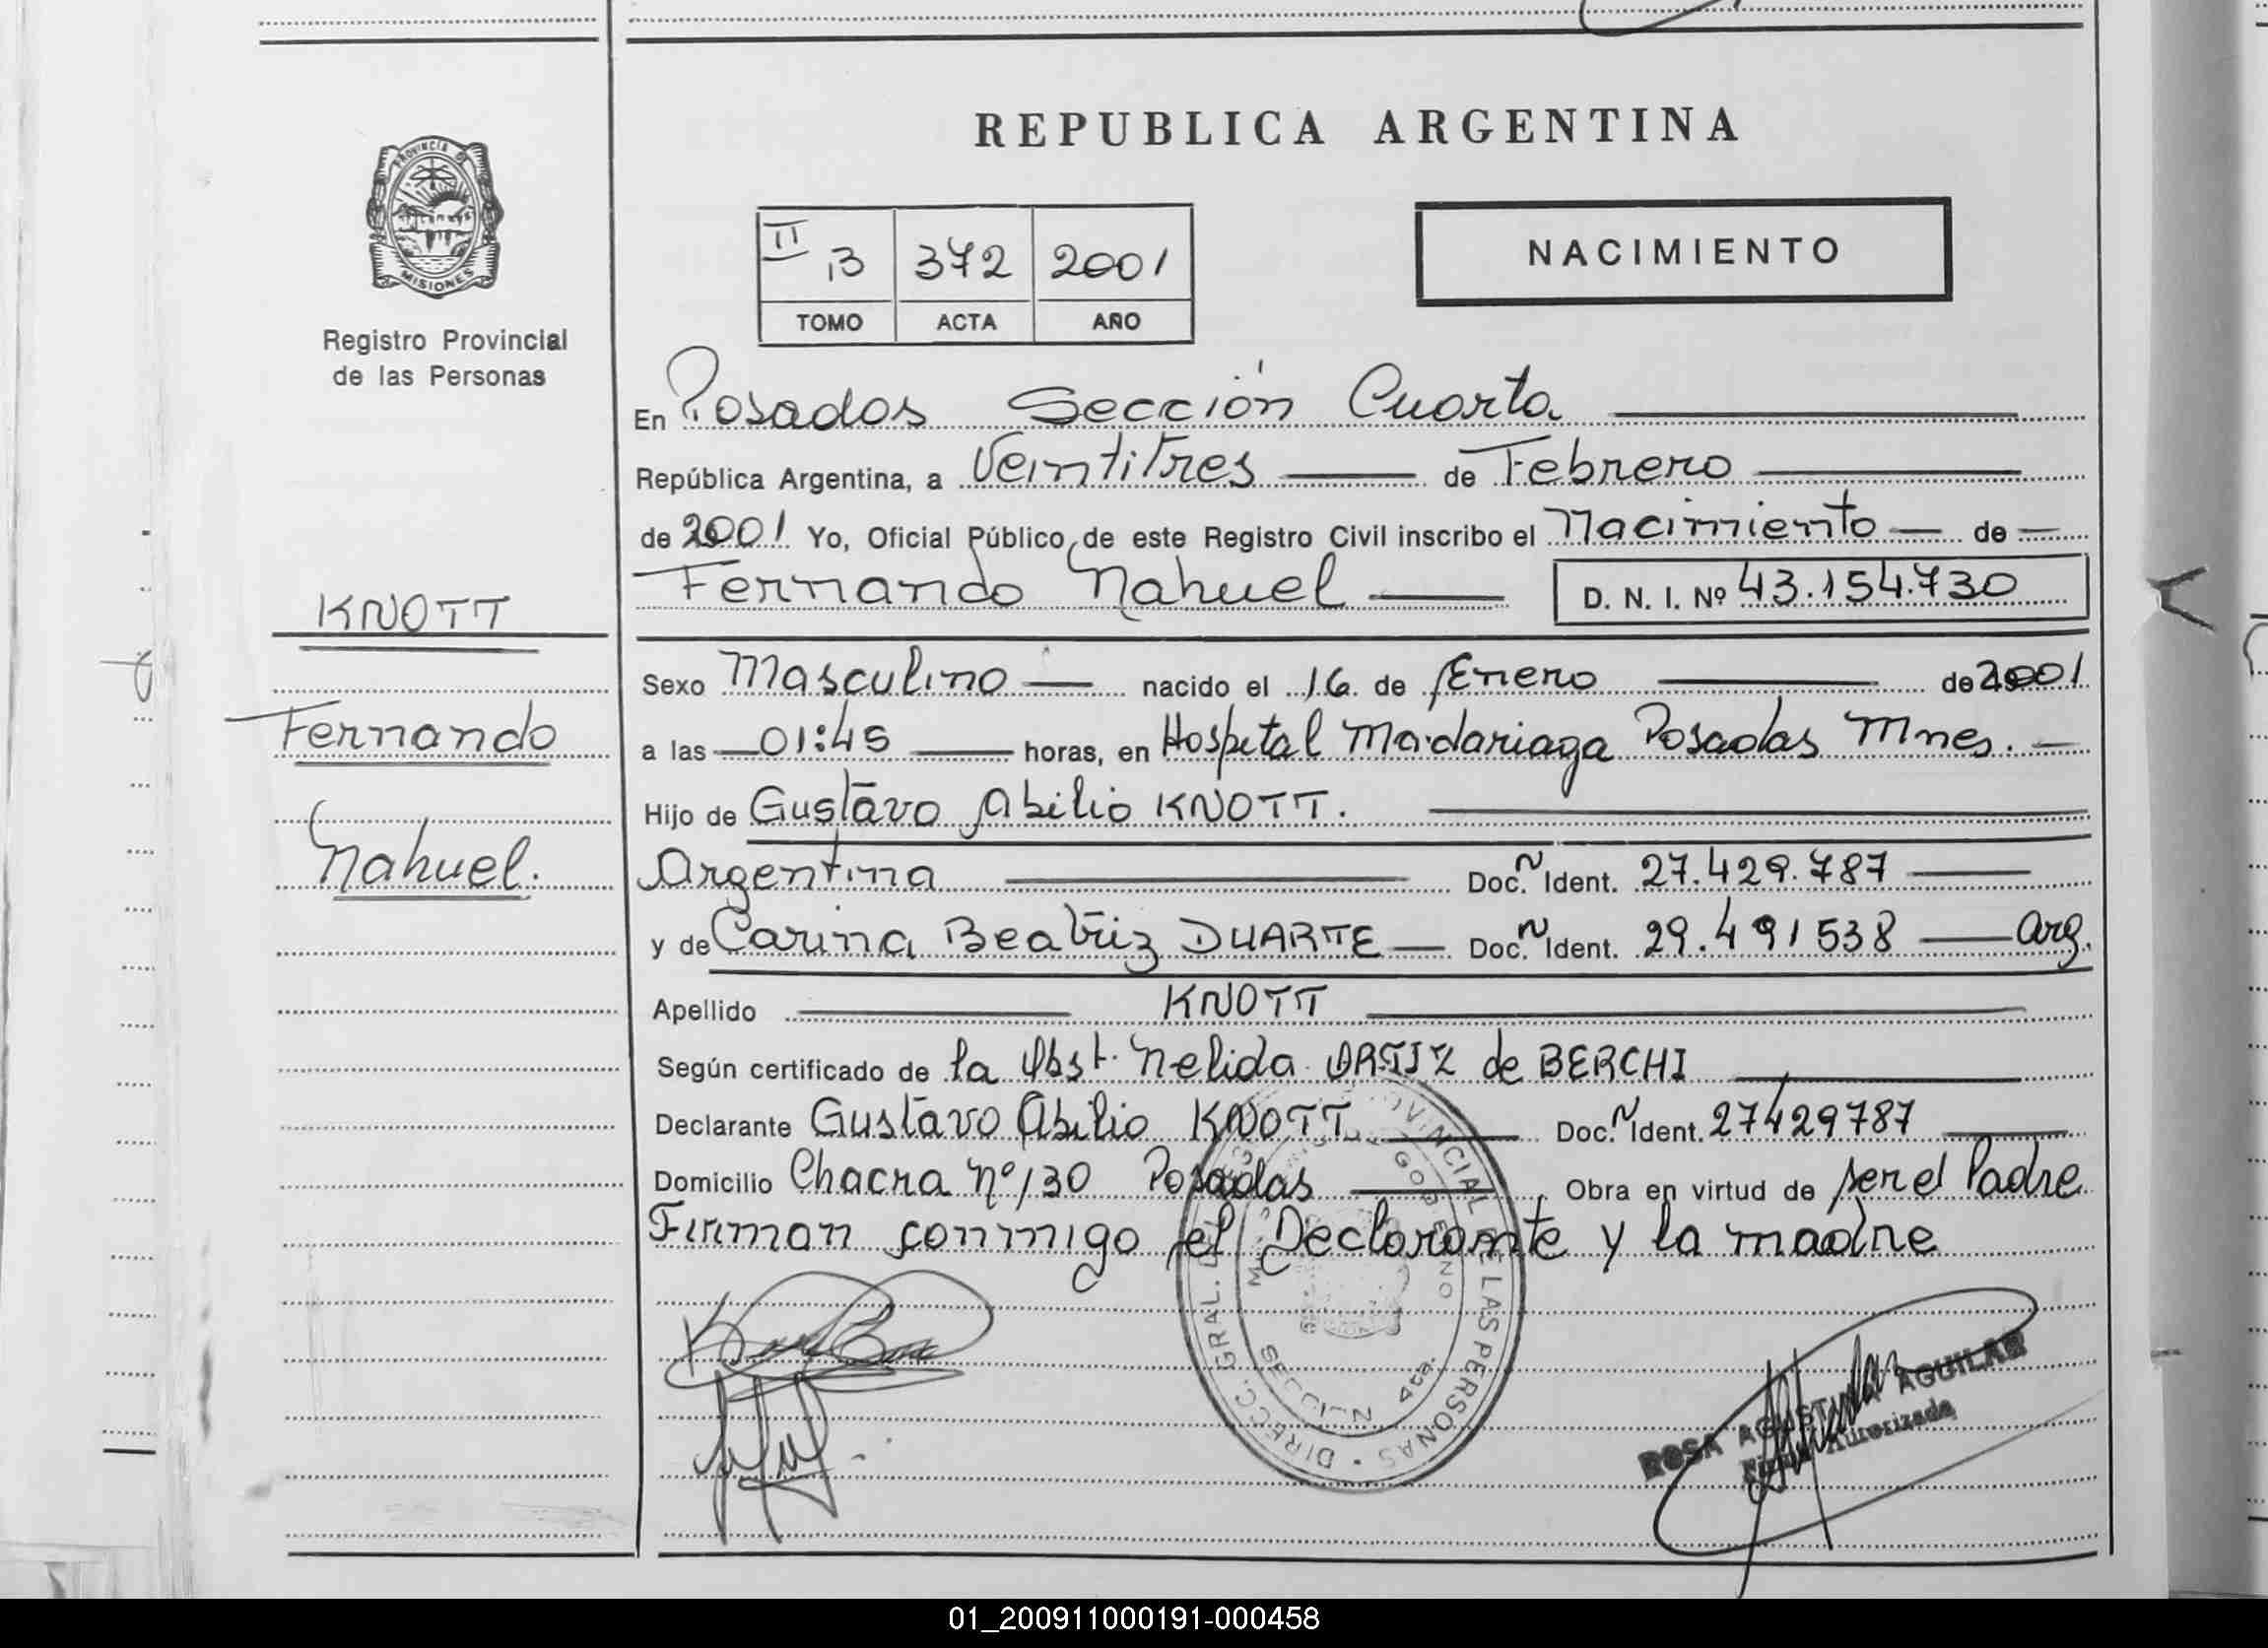 REPUBLICA ARGENTINA
PROVINCIA DE
MISIONES
Registro Provincial
de las Personas
II 3 372 2001
TOMO ACTA AÑO
NACIMIENTO
En Posadas Sección Cuarta
República Argentina, a Veintitres de Febrero
de 2001 Yo, Oficial Público de este Registro Civil inscribo el Nacimiento de
Fernando Nahuel D. N. I. Nº 43.154.730
KNOTT
Fernando
Nahuel.
Sexo Masculino nacido el 16 de Enero de 2001
a las 01:45 horas, en Hospital Madariaga Posadas Mnes.
Hijo de Gustavo Abilio KNOTT.
Argentina Doc. N Ident. 27.429.787
y de Carina Beatriz DUARTE Doc. N Ident. 29.491538 Arg.
Apellido KNOTT
Según certificado de la Obst. Nelida ORTIZ de BERCHI
Declarante Gustavo Abilio KNOTT Doc. N Ident. 27429787
Domicilio Chacra Nº 130 Posadas Obra en virtud de ser el Padre
Firman conmigo el Declarante y la madre
DIRECC. GRAL. PROVINCIAL DE LAS PERSONAS
GOBIERNO
SECCION 4ta.
ROSA AGUSTINA AGUILAR
Firma Autorizada
01_200911000191-000458